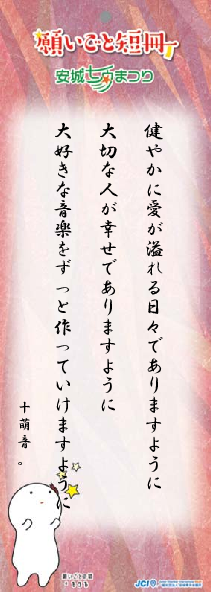 願いごと短冊
安城七夕まつり
健やかに愛が溢れる日々でありますように
大切な人が幸せでありますように
大好きな音楽をずっと作っていけますように
十萌音。
願いごと短冊
JCI